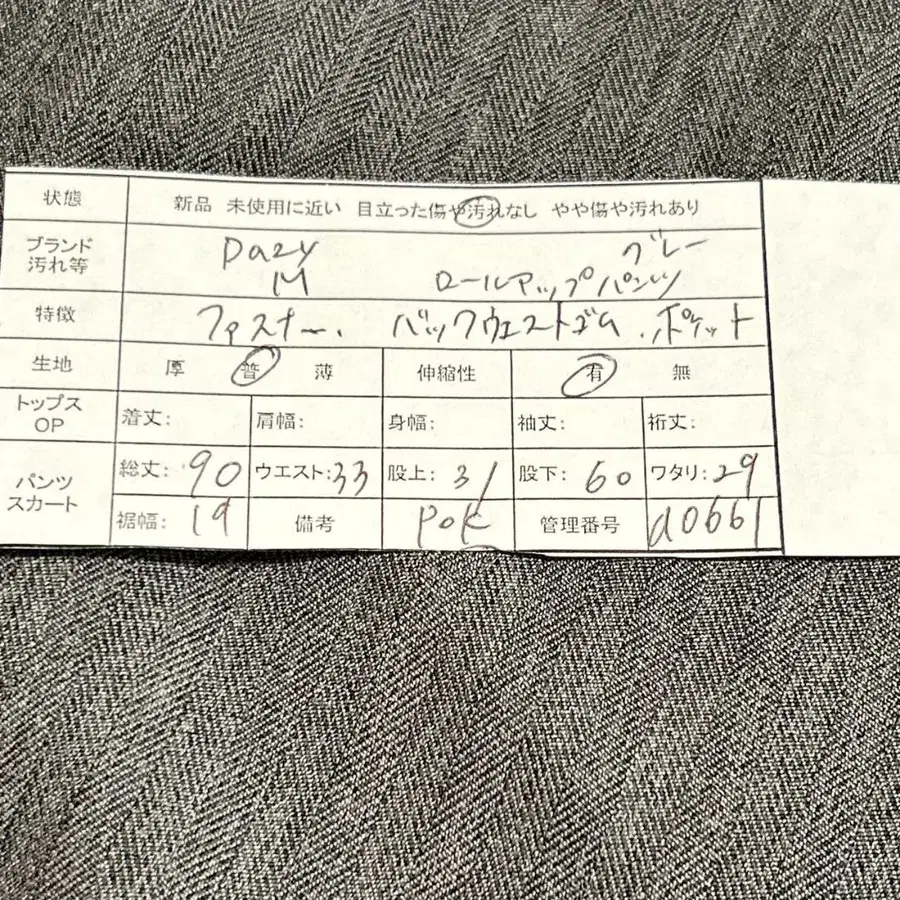 状態 新品 未使用に近い 目立った傷や汚れなし やや傷や汚れあり
ブランド Dazy グレー
汚れ等 M ロールアップパンツ
特徴 ファスナー、バックウエストゴム、ポケット
生地 厚 普 薄 伸縮性 有 無
トップス
OP 着丈: 肩幅: 身幅: 袖丈: 裄丈:
パンツ
スカート 総丈: 90 ウエスト: 33 股上: 31 股下: 60 ワタリ: 29
裾幅: 19 備考 pok 管理番号 a0661